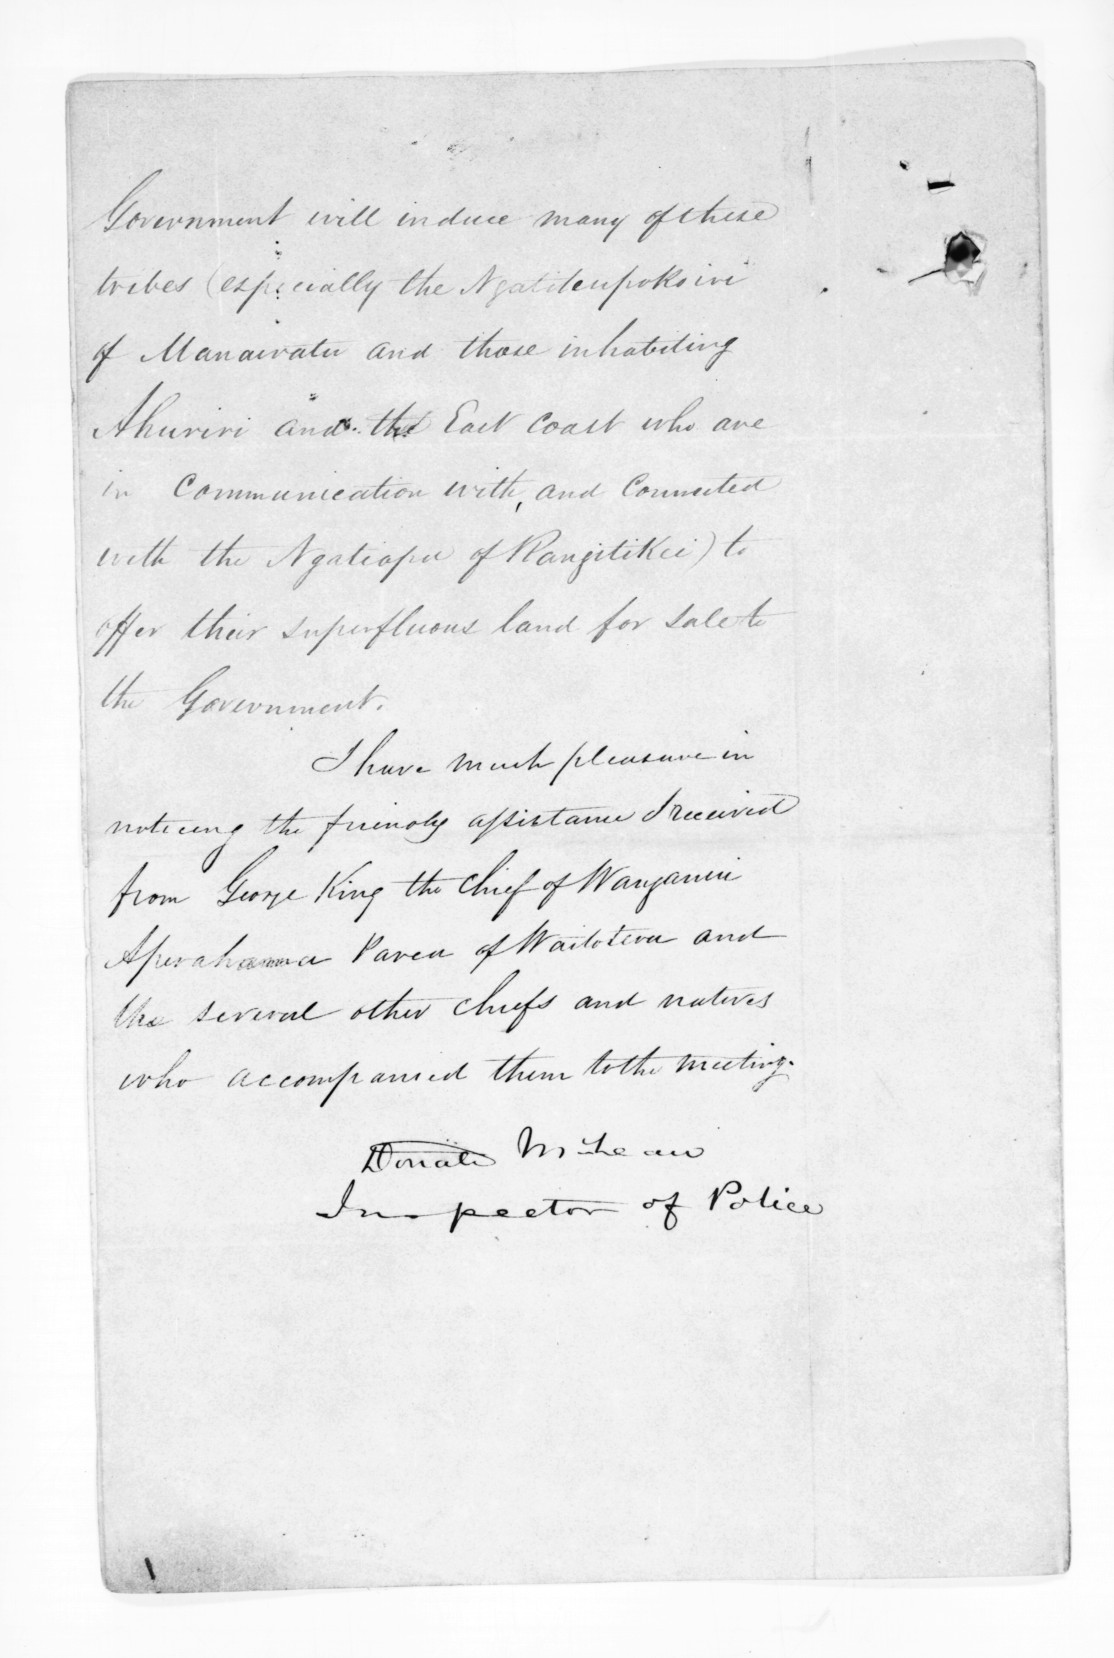 Government will induce many of these
tribes (especially the Ngatiteupokoiri
of Manawatu and those inhabiting
Ahuriri and the East Coast who are
in Communication with, and Connected
with the Ngatiapa of Rangitikei) to
offer their superfluous land for sale to
the Government.
I have much pleasure in
noticing the friendly assistance I received
from George King the Chief of Wanganui
Aperahama Parea of Waitotara and
the several other chiefs and natives
who accompanied them to the meeting.
Donald McLean
Inspector of Police